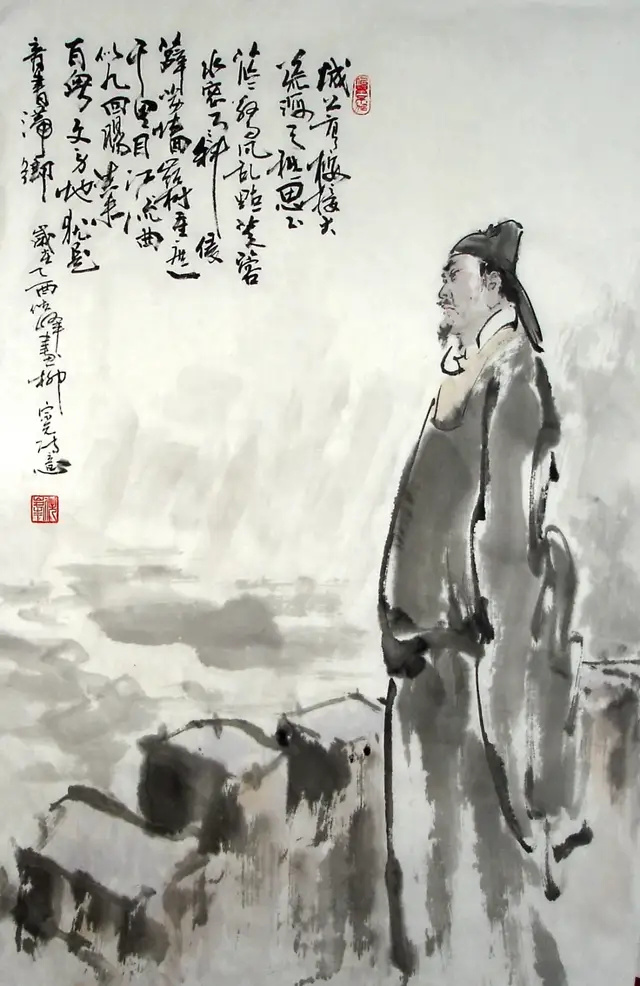 城上高楼接大
荒海天愁思正
茫茫惊风乱飐芙蓉
水密雨斜侵
薜荔墙岭树重遮
千里目江流曲
似九回肠共来
百粤文身地犹是
音书滞乡
岁在乙酉峰画柳宗元诗意